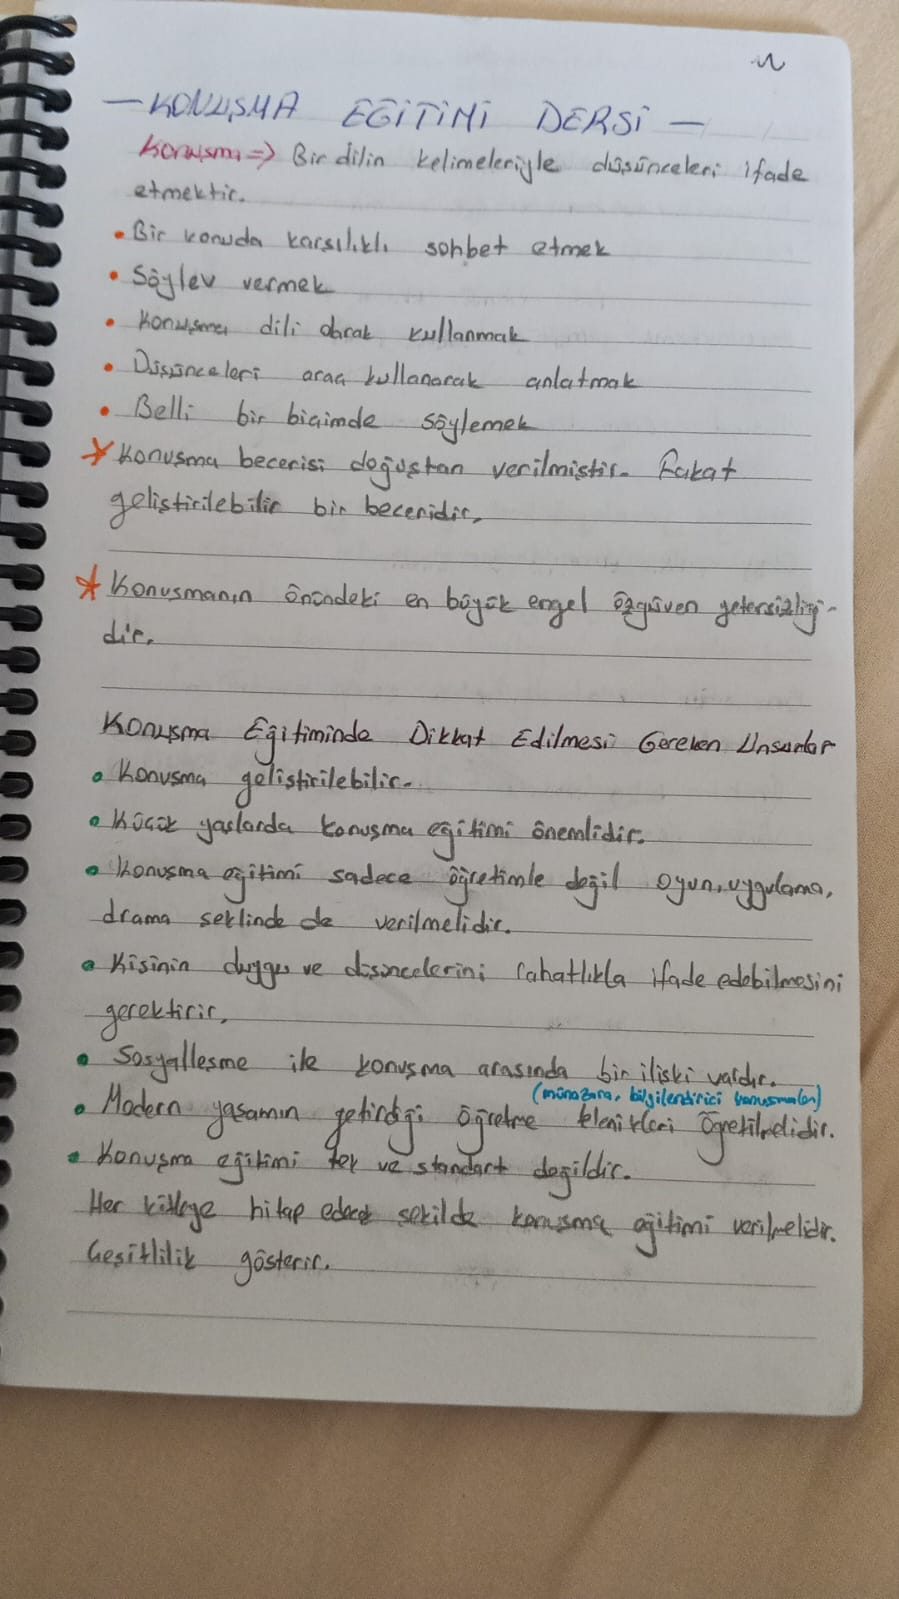 - KONUŞMA EĞİTİMİ DERSİ -
Konuşma => Bir dilin kelimeleriyle düşünceleri ifade
etmektir.
• Bir konuda karşılıklı sohbet etmek
• Söylev vermek
• Konuşma dili olarak kullanmak
• Düşünceleri araç kullanarak anlatmak
• Belli bir biçimde söylemek
* Konuşma becerisi doğuştan verilmiştir. Fakat
geliştirilebilir bir beceridir.
* Konuşmanın önündeki en büyük engel özgüven yetersizliği-
dir.
Konuşma Eğitiminde Dikkat Edilmesi Gereken Unsurlar
• Konuşma geliştirilebilir.
• Küçük yaşlarda konuşma eğitimi önemlidir.
• Konuşma eğitimi sadece öğretimle değil oyun, uygulama,
drama şeklinde de verilmelidir.
• Kişinin duygu ve düşüncelerini rahatlıkla ifade edebilmesini
gerektirir.
• Sosyalleşme ile konuşma arasında bir ilişki vardır.
(münazara, bilgilendirici konuşmalar)
• Modern yaşamın getirdiği öğretme teknikleri öğretilmelidir.
• Konuşma eğitimi tek ve standart değildir.
Her kitleye hitap edecek şekilde konuşma eğitimi verilmelidir.
Çeşitlilik gösterir.